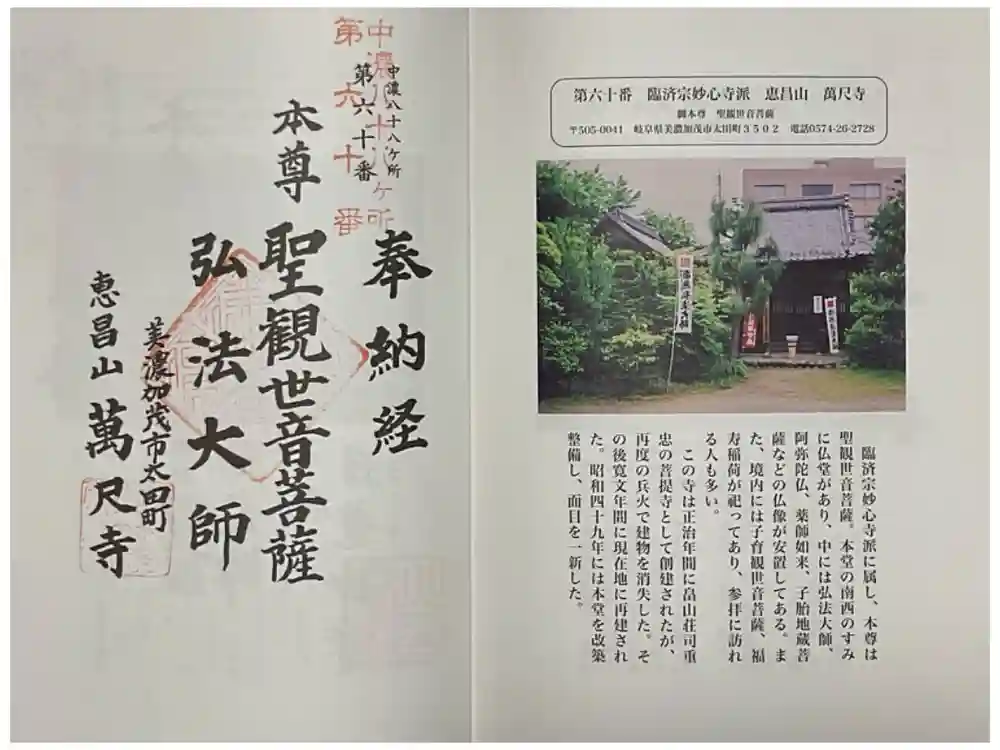 第六十番　臨済宗妙心寺派　恵昌山　萬尺寺
御本尊　聖観世音菩薩
〒505-0041　岐阜県美濃加茂市太田町3502　電話0574-26-2728
臨済宗妙心寺派に属し、本尊は
聖観世音菩薩。本堂の南西のすみ
に仏堂があり、中には弘法大師、
阿弥陀仏、薬師如来、子胎地蔵菩
薩などの仏像が安置してある。ま
た、境内には子育観世音菩薩、福
寿稲荷が祀ってあり、参拝に訪れ
る人も多い。
この寺は正治年間に畠山荘司重
忠の菩提寺として創建されたが、
再度の兵火で建物を消失した。そ
の後寛文年間に現在地に再建され
た。昭和四十九年には本堂を改築
整備し、面目を一新した。
中濃八十八ケ所
第六十番
中濃八十八ヶ所
第六十番
奉納経
本尊　聖観世音菩薩
弘法大師
美濃加茂市太田町
恵昌山　萬尺寺